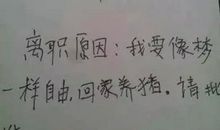 离职原因：我要像梦
一样自由，回家养猪。请批
准